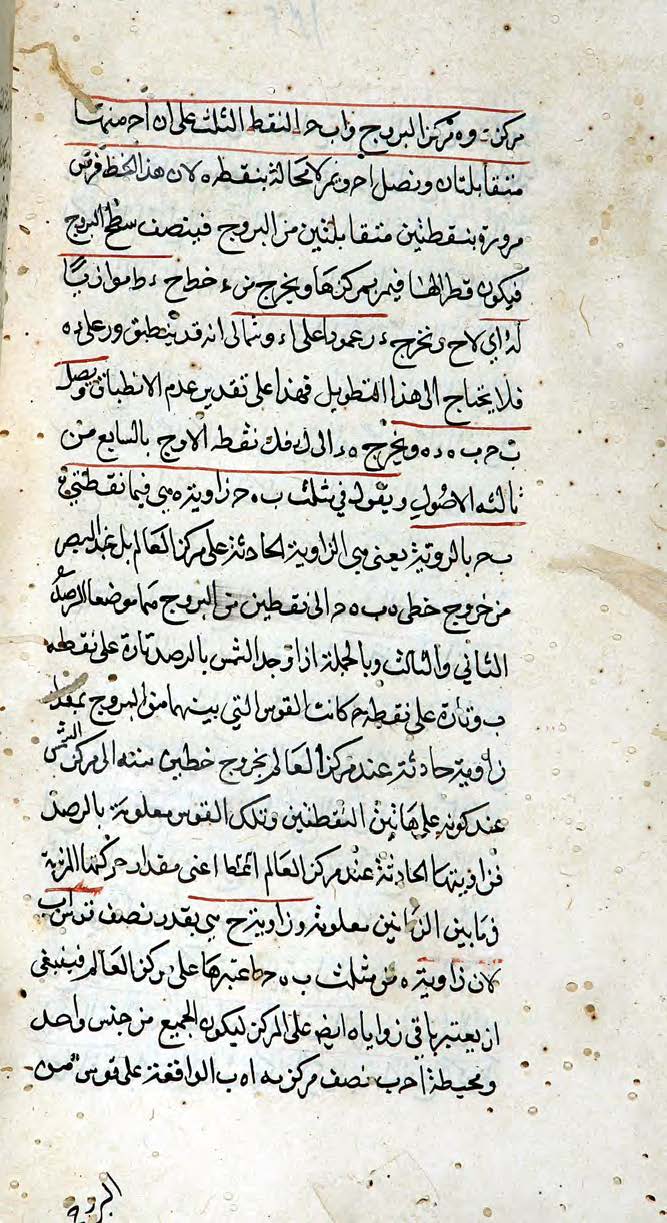 مركزت وه مركز البروج و ا ب ح النقط الثلث على ان ا ح منهما
متقابلتان ونصل ا ح ويمر لا محالة بنقطة ه لان هذا الخط فرض
مروره بنقطتين متقابلتين من البروج فينصف سطح البروج
فيكون قطرا لها فيمر بمركزها ويخرج من ء خط ا ح ء ط موازيا
له اي لاح ونخرج ء ر عمودا على ا ء وتمالى انه قد ينطبق ور على ء ه
فلا يحتاج الى هذا التطويل فهذا على تقدير عدم الانطباق ويصل
ب ح ب ه ء ه ويخرج ه ء الى ك فك نقطة الاوج بالسابع من
ثالثه الاصول ويقول في مثلث ب ه ح زاوية ه هي فيما نقطتي
ب ح بالروية يعنى هي الزاوية الحادثة على مركز العالم بل عند البصر
من خروج خطى ه ب ه ح الى نقطين من البروج هما موضعا الرصد
الثاني والثالث وبالجملة اذا وجد الشمس بالرصد تارة على نقطة
ب وتارة على نقطة ح كانت القوس التي بينهما من البروج بمقدار
زاوية حادثة عند مركز العالم بخروج خطين منته الى مركز الشمس
عند كونه على هاتين النقطتين وتلك القوس معلومة بالرصد
فزاويتها الحادثة عند مركز العالم ايضا اعنى مقدار حركتها المرئية
فيما بين الزمانين معلومة وزاوية ح هي بقدر نصف قوس اب
لان زاوية ه من مثلث ب ه ح اعتبرها على مركز العالم فينبغى
ان يعتبر باقي زواياه ايضا على المركز ليكون الجميع من جنس واحد
ومحيطة ا ح ب نصف مركزية ا ه ب الواقعة على قوس من
البروج